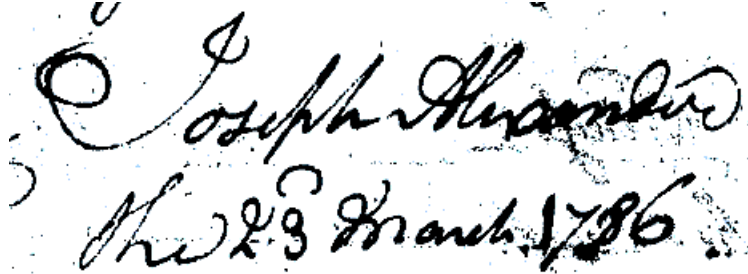 Joseph Alexander
the 23 March 1786.